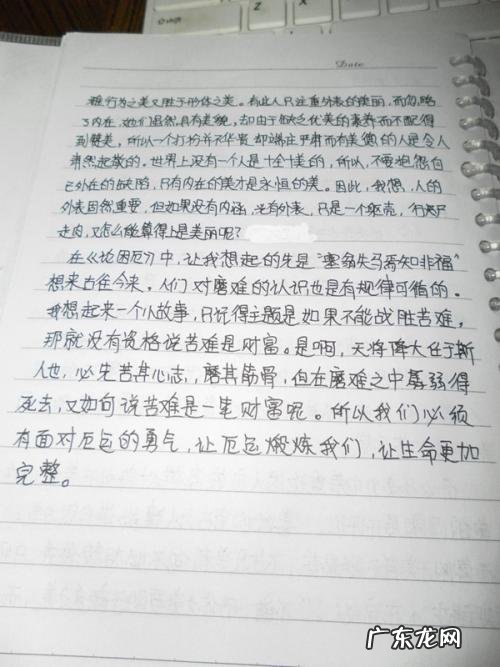 Date
雅行为之美又胜于形体之美。有些人只注重外表的美丽,而忽略
了内在,她们虽然具有美貌,却由于缺乏优美的素养而不配得
到赞美,所以一个打扮并不华贵却端庄严肃而有美德的人是令人
肃然起敬的。世界上没有一个人是十全十美的,所以,不要抱怨自
己外在的缺陷,只有内在的美才是永恒的美。因此,我想,人的
外表固然重要,但如果没有内涵,光有外表,只是一个躯壳,行尸
走肉,又怎么能算得上是美丽呢?
在《论困厄》中,让我想起的先是“塞翁失马焉知非福”
想来古往今来。人们对磨难的认识也是有规律可循的。
我想起来一个小故事,只记得主题是如果不能战胜苦难,
那就没有资格说苦难是财富。是啊,天将降大任于斯
人也,必先苦其心志,磨其筋骨,但在磨难之中孱弱得
死去,又如何说苦难是一笔财富呢。所以我们必须
有面对厄运的勇气,让厄运煅炼我们,让生命更加
完整。
广东龙网